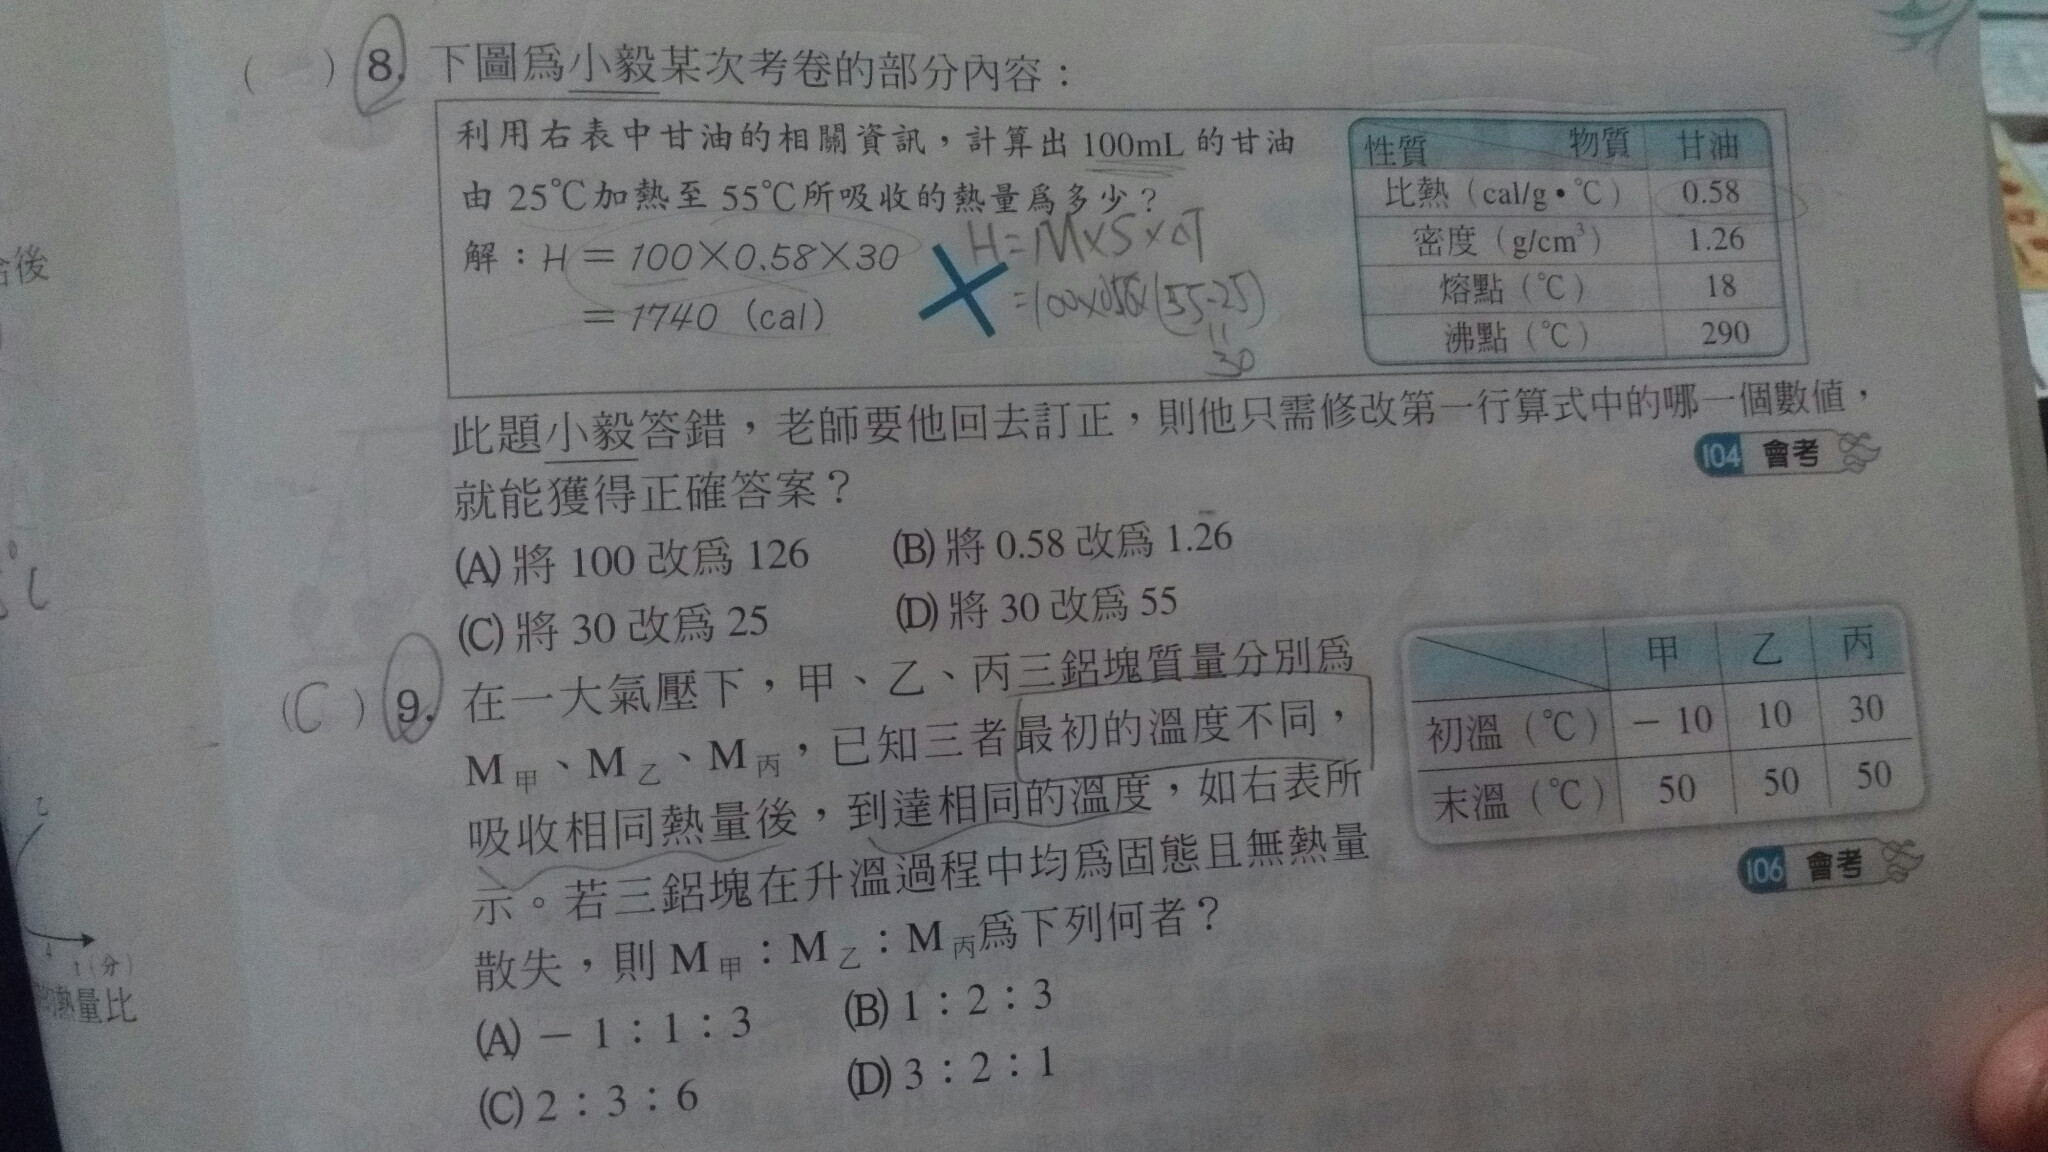 ( ) 8. 下圖爲小毅某次考卷的部分內容：
利用右表中甘油的相關資訊，計算出 100mL 的甘油
由 25℃加熱至 55℃所吸收的熱量爲多少？
解：H＝100×0.58×30
＝1740（cal）
H=M×S×ΔT
(55-25)
30
性質 物質 甘油
比熱（cal/g•℃） 0.58
密度（g/cm³） 1.26
熔點（℃） 18
沸點（℃） 290
此題小毅答錯，老師要他回去訂正，則他只需修改第一行算式中的哪一個數值，
就能獲得正確答案？
104 會考
(A) 將 100 改爲 126 (B) 將 0.58 改爲 1.26
(C) 將 30 改爲 25 (D) 將 30 改爲 55
(C) 9. 在一大氣壓下，甲、乙、丙三鋁塊質量分別爲
M甲、M乙、M丙，已知三者最初的溫度不同，
吸收相同熱量後，到達相同的溫度，如右表所
示。若三鋁塊在升溫過程中均爲固態且無熱量
散失，則 M甲：M乙：M丙爲下列何者？
甲 乙 丙
初溫（℃） －10 10 30
末溫（℃） 50 50 50
106 會考
(A) －1：1：3 (B) 1：2：3
(C) 2：3：6 (D) 3：2：1
後
乙
4 t（分）
熱量比